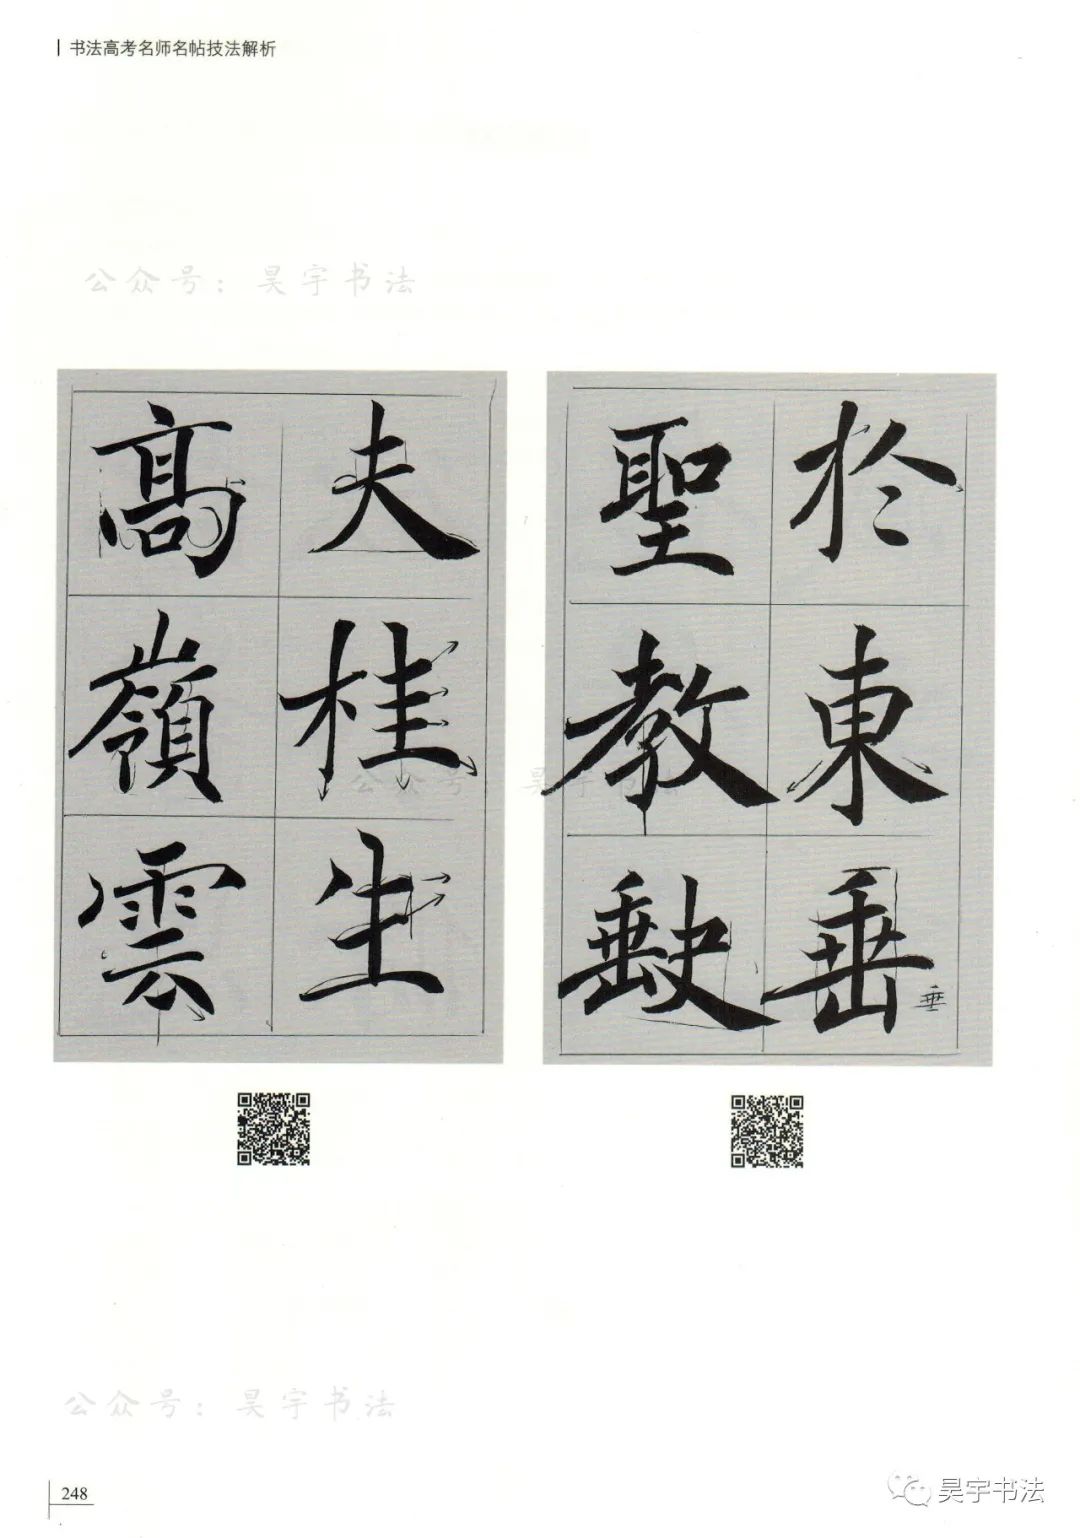 书法高考名师名帖技法解析
公众号：昊宇书法
於東垂
聖教缺
垂
夫桂生
高嶺雲
公众号 昊宇书法
公众号：昊宇书法
248
昊宇书法